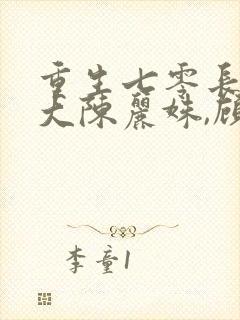 重生七零長
大陳麗姝,顧
李童1